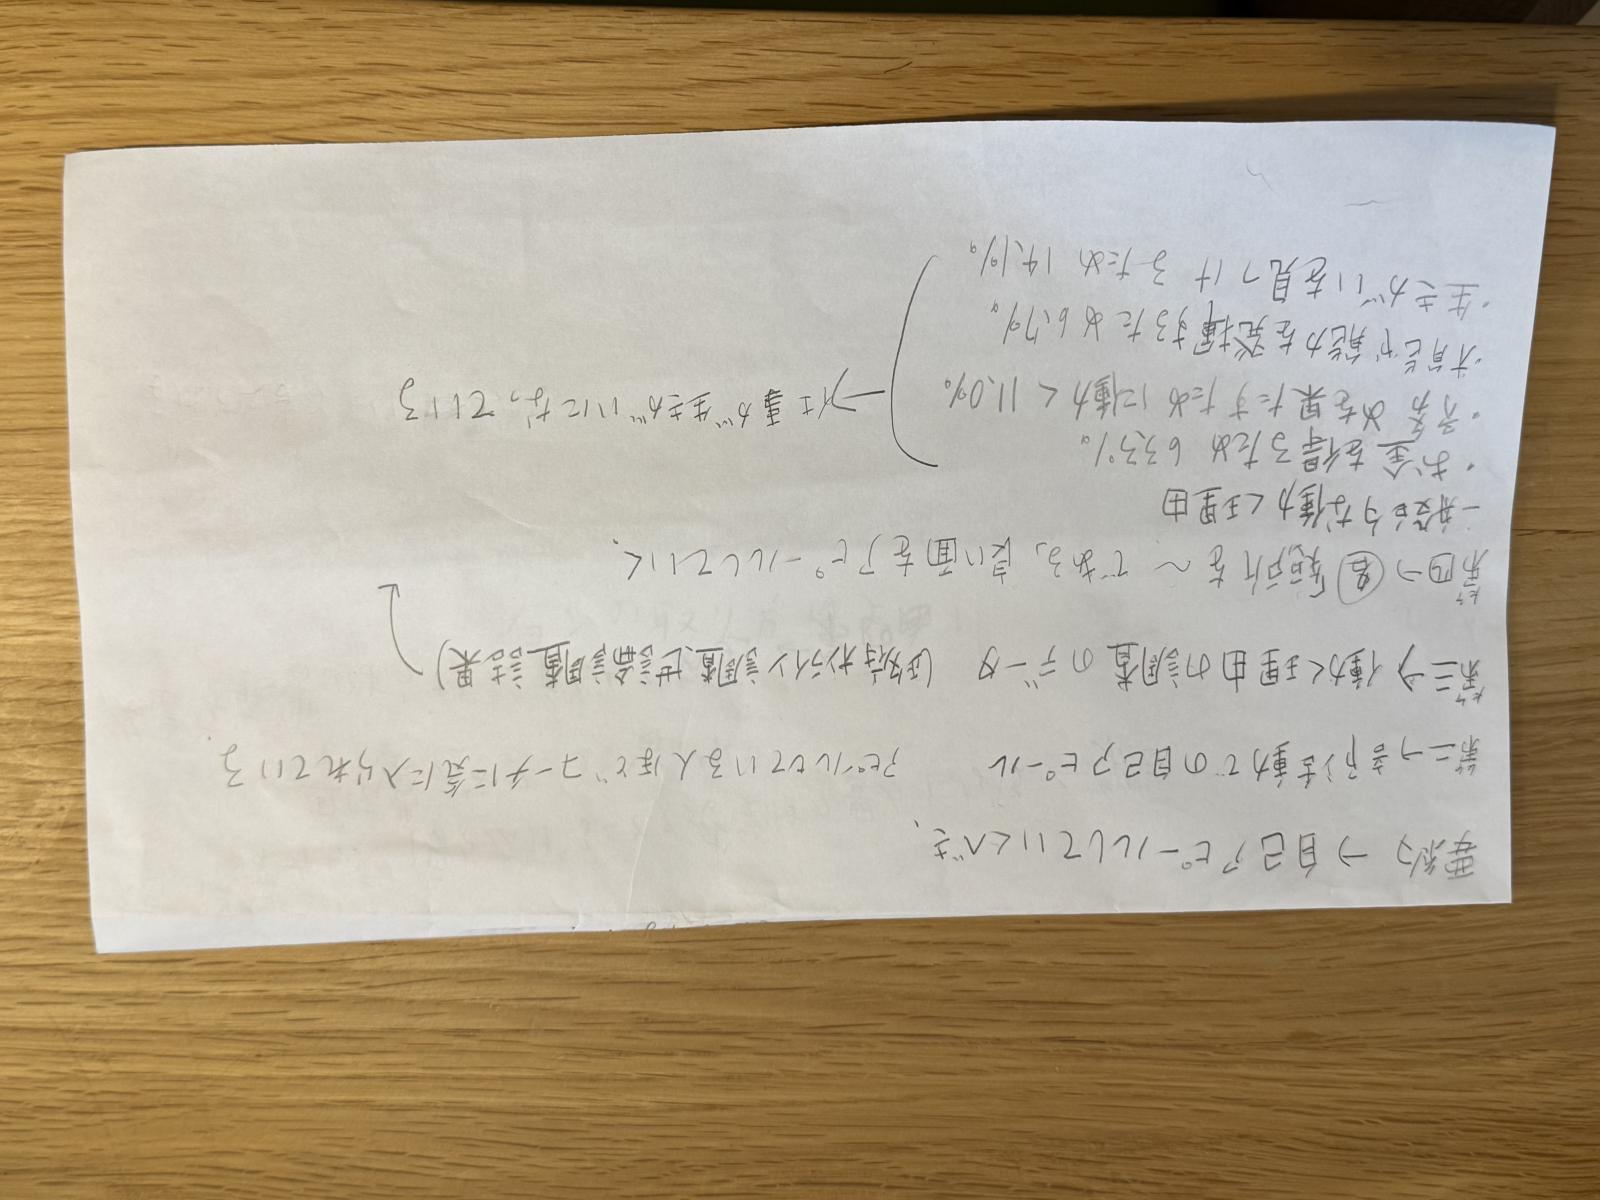 要約→自己アピールしていくべき、
第二→部活動での自己アピール アピールしている人ほどコーチに気に入られている.
第三→働く理由の調査のデータ (政府オンライン調査、世論調査結果)
第四→名 短所を〜である、良い面をアピールしていく、
一般的な働く理由
・お金を得るため 63.3%
・務めを果たすために働く 11.0%
・才能や能力を発揮するため 6.7%
・生きがいを見つけるため 14.1%
→仕事が生きがいになっている